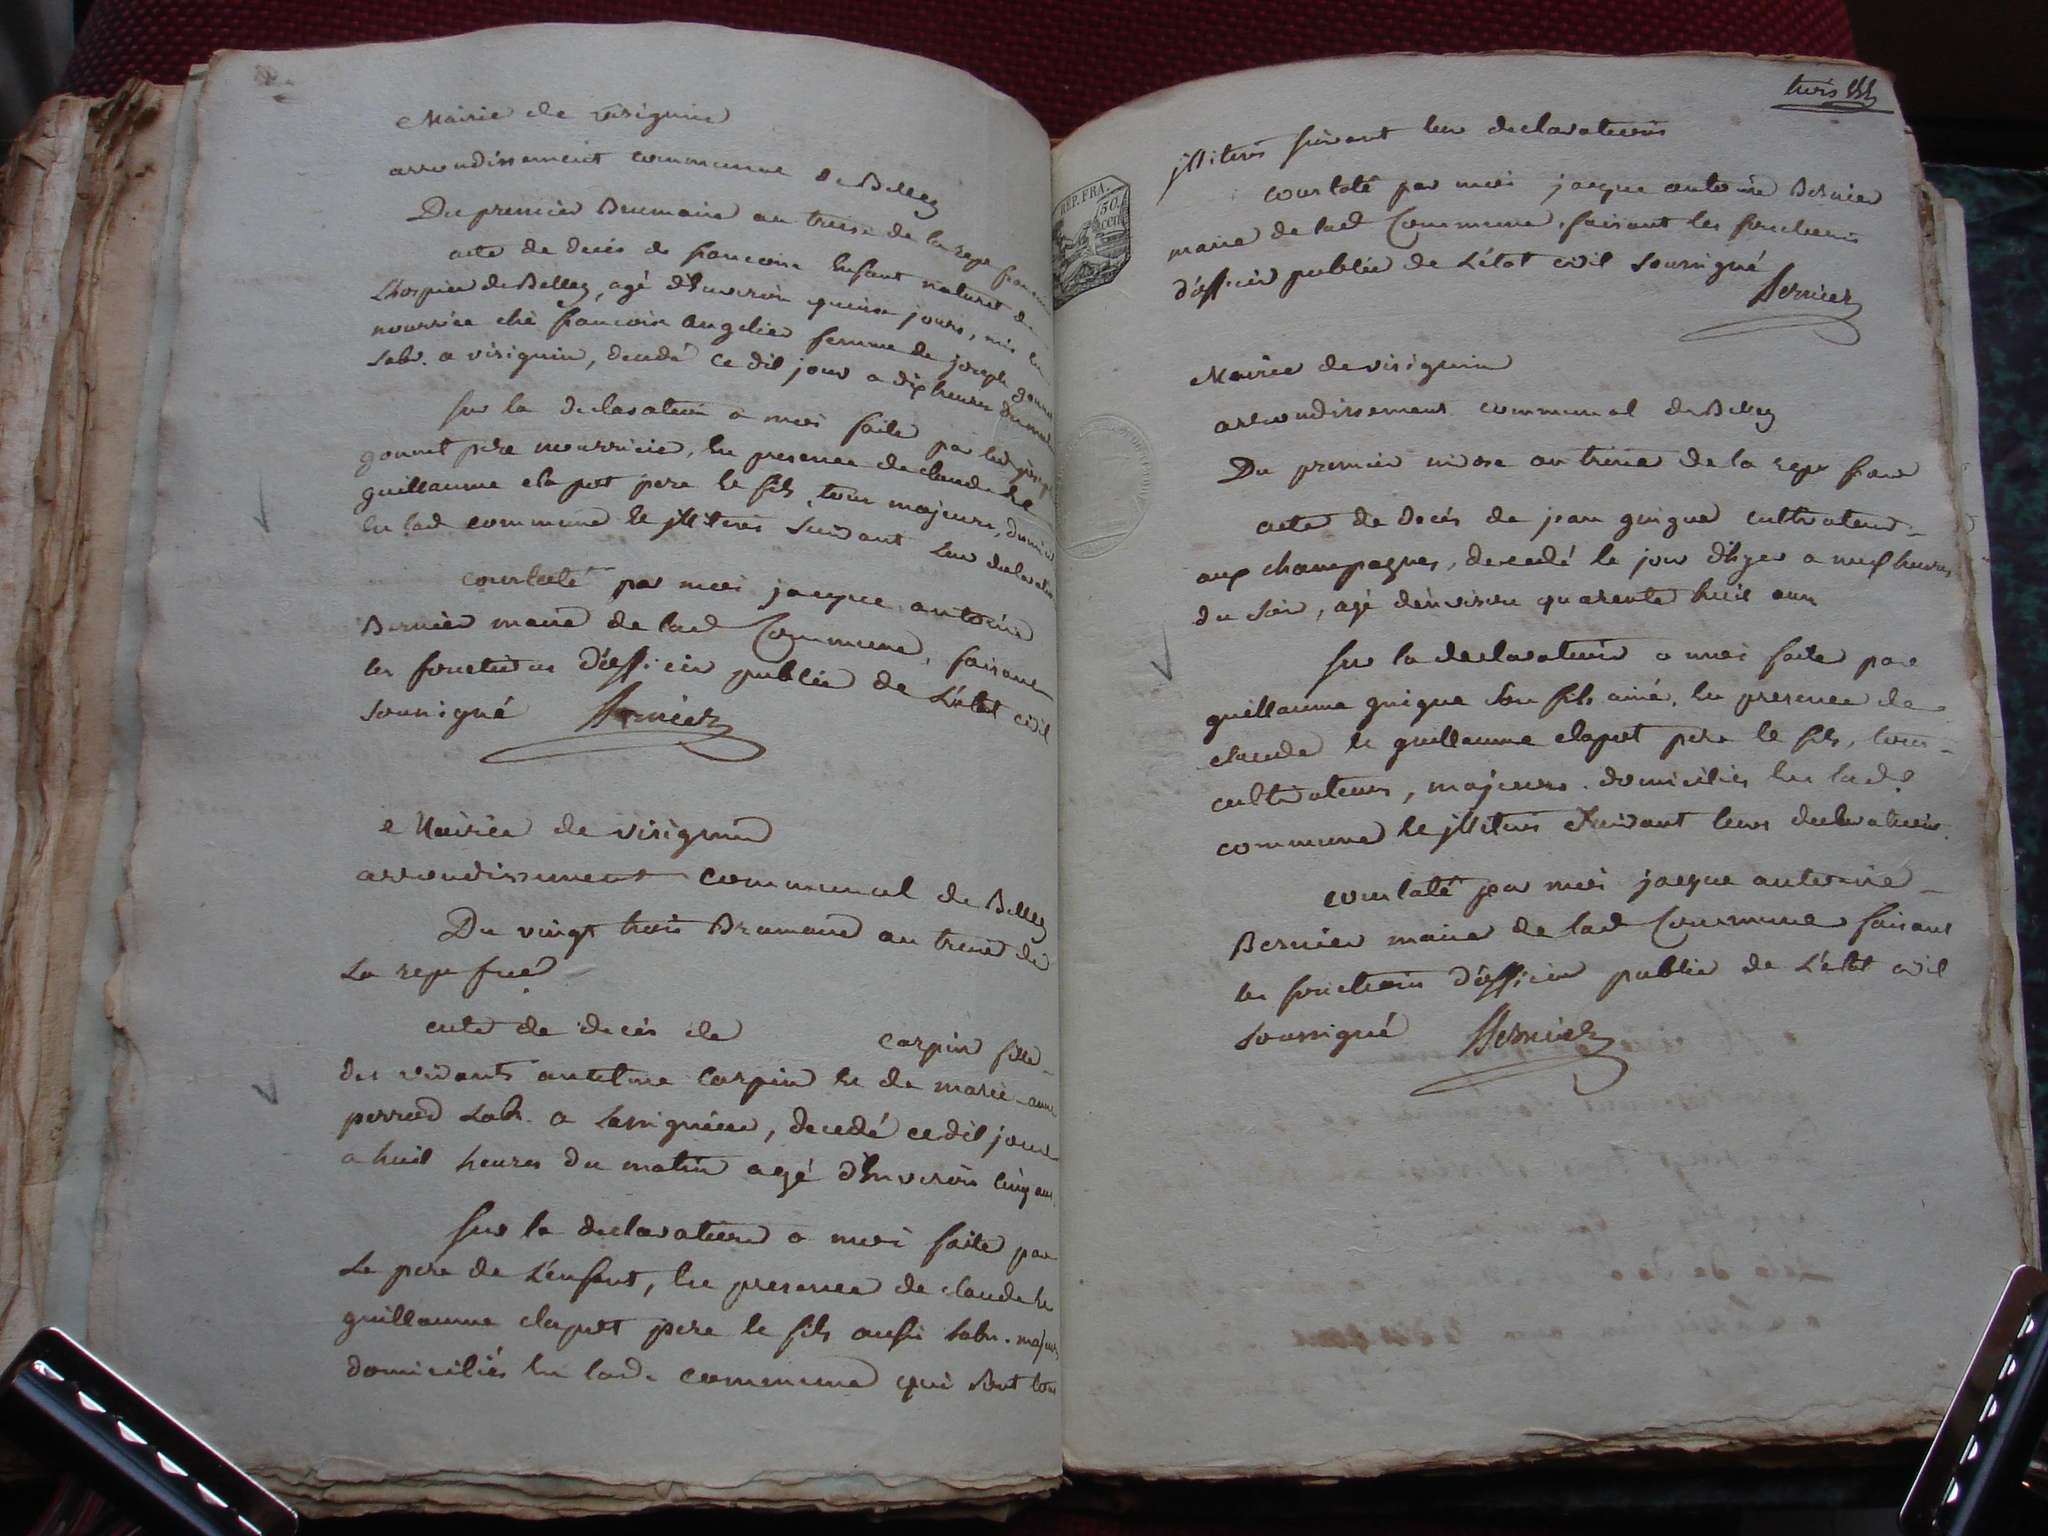 Mairie de virignin
arrondissement communal de Belley
Du premier Brumaire an treise de la repe francais
acte de decés de francoise Enfant naturel de
L'hospice de Belley, agé d'Environ quinse jours, mis En
nourrice ché francoise Angelier femme de joseph gonnet
Labr. a virignin, decedé ce dit jour a dix heures du matin
Sur la declaration a moi faite par led joseph
gonnet pere nourricier, En presence de claude Et
guillaume clapot pere Et fils, tous majeurs, domiciliés
En lad commune Et jlliterés Suivant Leur declaration
constaté par moi jacque antoine
Bernier maire de lad Commune, faisant
les fonctions d'officier public de L'état civil
soussigné Bernier
Mairie de virignin
arrondissement communal de Belley
Du vingt trois Brumaire an treise de
La repe frae
acte de decés de carpin fille
des vivants antelme carpin Et de marie anne
perred Labr. a Lassignieu, decedé ce dit jour
a huit heures du matin agé d'Environ cinq ans
Sur la declaration a moi faite par
Le pere de L'enfant, En presence de claude Et
guillaume clapot pere Et fils aussi Labr. majeurs
domiciliés En lad. commune qui sont tous
trois
jlliterés suivant leur declarations
constaté par moi jacque antoine Bernier
maire de lad Commune, faisant les fonctions
d'officier public de L'état civil soussigné
Bernier
REP. FRA.
50
cent
Mairie de virignin
arrondissement communal de Belley
Du premier nivose an treise de la repe frane
acte de decés de jean guigue cultivateur
aux champagnes, decedé le jour d'hyer a neuf heures
du soir, agé d'environ quarente huit ans
Sur la declaration a moi faite par
guillaume guigue Son fils ainé, En presence de
claude Et guillaume clapot pere Et fils, tous
cultivateurs, majeurs, domiciliés En lade
commune Et jlliterés Suivant leurs declaration.
constaté par moi jacque antoine
Bernier maire de lad Commune faisant
les fonctions d'officier public de L'état civil
soussigné Bernier